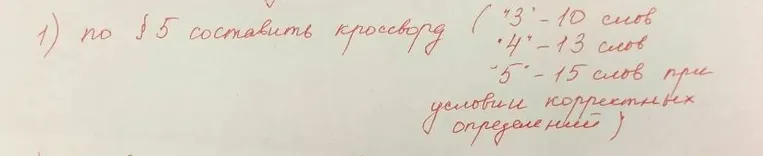 1) по § 5 составить кроссворд ("3" - 10 слов
"4" - 13 слов
"5" - 15 слов при
условии корректных
определений)